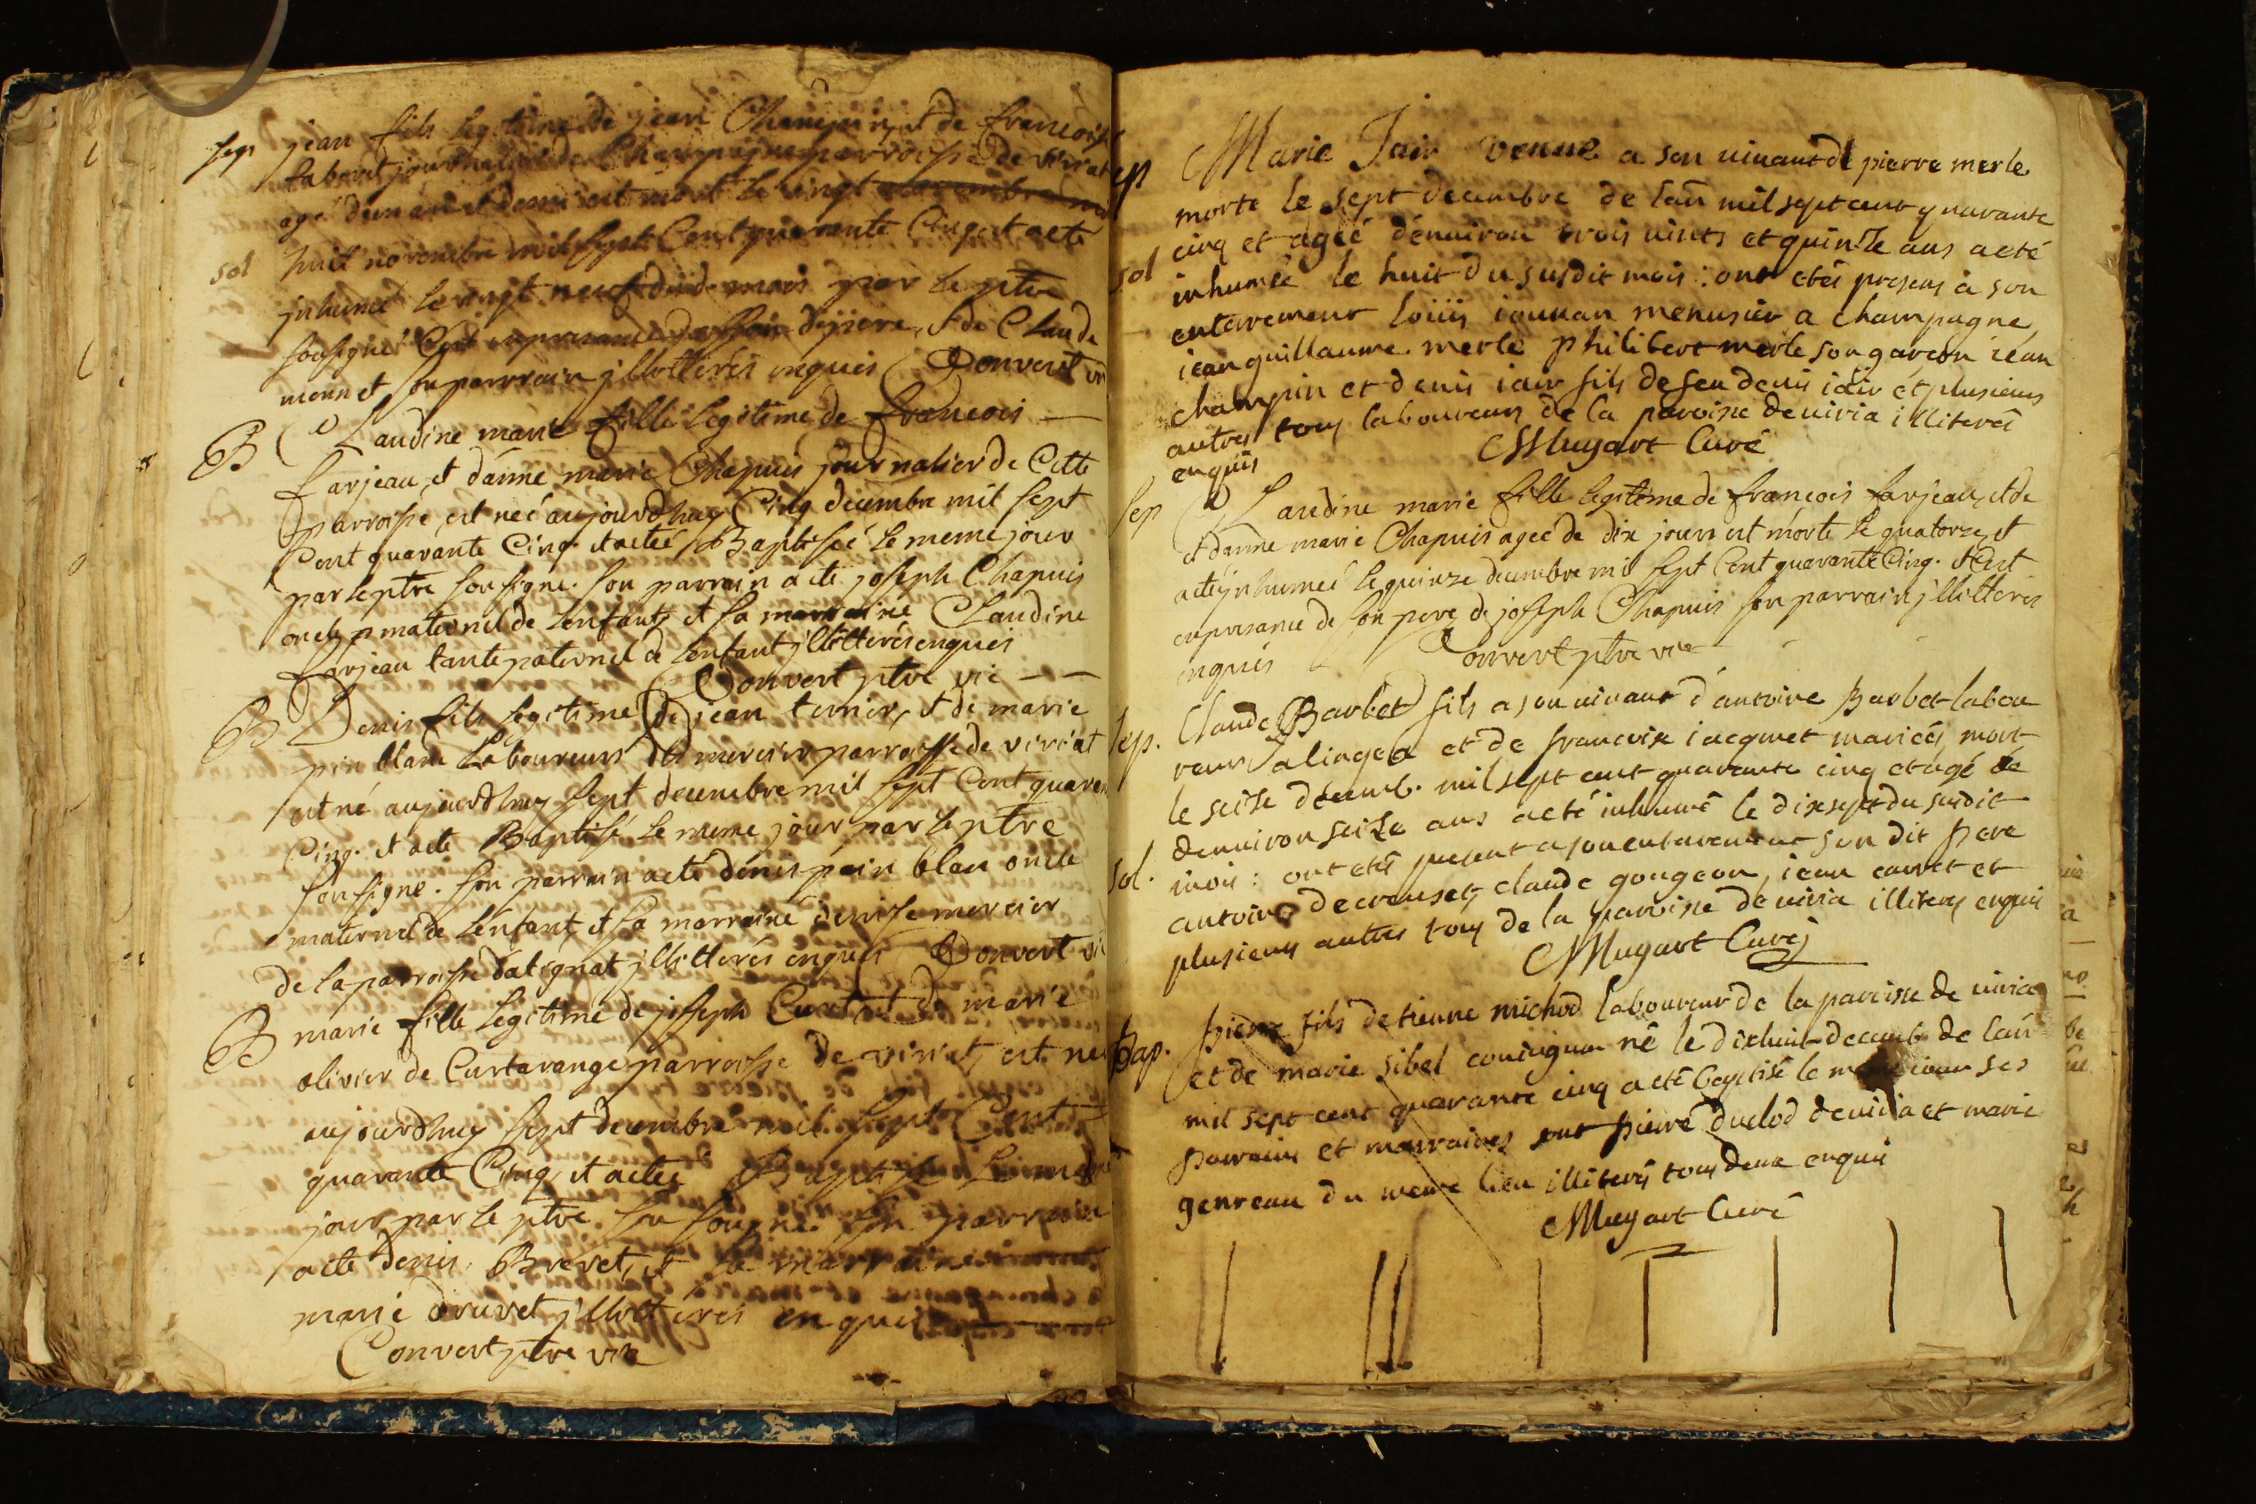 sep jean fils legitime de jean Champin, et de francoise
Rabuet journalier de Champagne parroisse de viriat
agé d'un an et demi est mort le vingt
sol huit novembre mil sept Cent quarante Cinq et acté
jnhumé le vingt neuf dud. mois par le ptre
sousigné
monnet son parrain jlletterés enquis Convert vic
B Claudine marie fille legitime de francois
farjeau, et d'anne marie Chapuis journalier de Cette
parroisse, est neé aujourdhuy Cinq decembre mil sept
Cent quarante Cinq. et acteé Baptiseé le meme jour
par le ptre sousigné. son parrain acté joseph Chapuis
oncle maternel de lenfant, et sa marraine Claudine
farjeau tante paternel de lenfant jlletterés enquis
Convert ptre vic
B Denis fils legitime de jean ternier, et de marie
pin blanc Laboureurs des merciers parroisse de viriat
est né aujourdhuy sept decembre mil sept Cent quaran
Cinq. et acté Baptisé le meme jour par le ptre
sousigné. son parrain acté dénis pain blan oncle
maternel de lenfant, et sa marraine denise mercier
de la parroisse d'atignat jlletterés enquis Convert vic
B marie fille legitime de joseph Curt, et de marie
olivier de Curtarange parroisse de viriat, est neé
aujourdhuy sept decembre mil sept Cent
quarante Cinq, et acteé Baptiseé le meme
jour par le ptre sousigné. son parrain
acté denis Brevet, et sa marraine
marie druvet jlletterés enquis
Convert ptre vic
sep Marie Jair venue a son vivant de pierre merle
morte le sept decembre de lan mil sept cent quarante
cinq et ageé d'environ trois vints et quinze ans a eté
sol inhumée le huit du susdit mois : ont etés presens à son
enterrement loüis iannan menusier a champagne,
iean guillaume merle philibert merle son garçon iean
champin et denis iair fils de feu denis iair et plusieurs
autres tous laboureurs de la paroisse de viria illiterés
enquis Mugart Curé
sep Claudine marie fille legitime de francois farjeau, et de
et d'anne marie Chapuis ageé de dix jours est morte le quatorze, et
acté jnhumeé le quinze decembre mil sept Cent quarante Cinq. et C'est
en presance de son pere, de joseph Chapuis son parrain jlletterés
enquis Convert ptre vic
sep. Claude Barbet fils a son vivant d'antoine Barbet labou
reur a lingea et de francoise iacquet mariés, mort
le seise décemb. mil sept cent quarante cinq et agé de
denviron seize ans a eté inhumé le dixsept du susdit
sol. mois : ont etés present a son entarement son dit Pere
antoine decreuset, claude gougeon, iean carret et
plusieurs autres tous de la paroisse de viria illiterés enquis
Mugart Curé
Bap. Pierre fils detienne michod laboureur de la paroisse de viria
et de marie sibel coniugum né le dixhuit decemb. de lan
mil sept cent quarante cinq a eté baptisé le meme iour ses
parrains et marraines sont Pierre duclod de viria et marie
genreau du meme lieu illiterés tous deux enquis
Mugart Curé